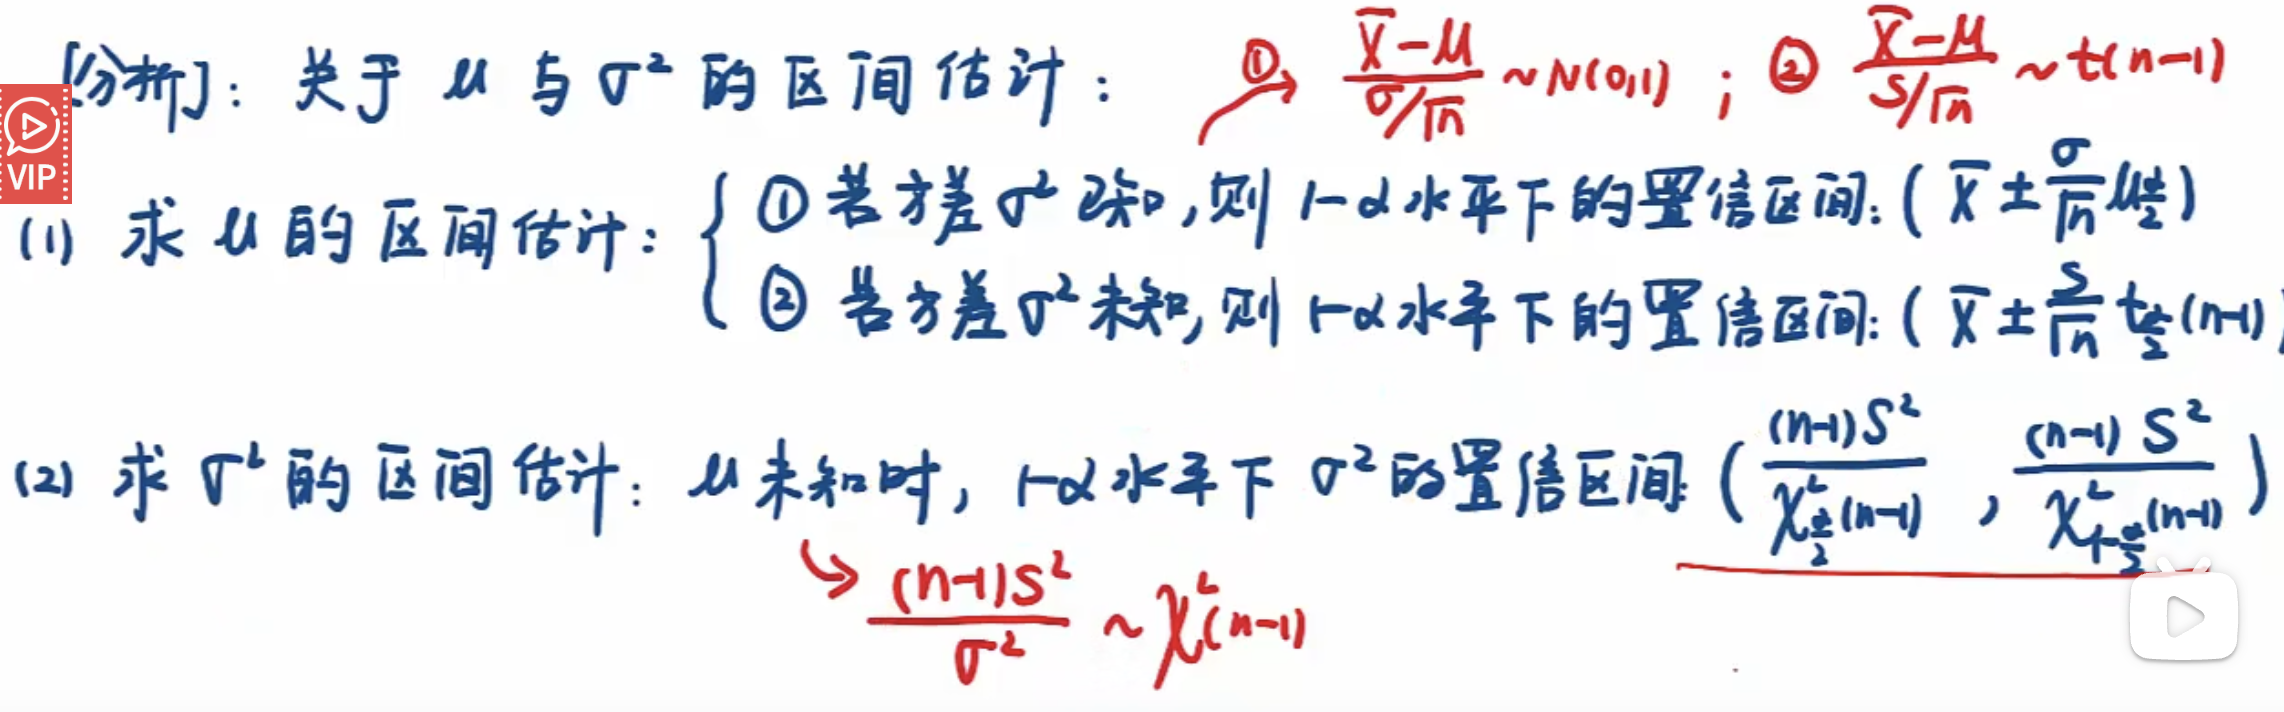 [分析]: 关于 μ 与 σ² 的区间估计: ① (X̄-μ)/(σ/√n) ~ N(0,1) ; ② (X̄-μ)/(S/√n) ~ t(n-1)
VIP
(1) 求 μ 的区间估计:
① 若方差 σ² 已知, 则 1-α 水平下的置信区间: ( X̄ ± σ/√n μ_{α/2} )
② 若方差 σ² 未知, 则 1-α 水平下的置信区间: ( X̄ ± S/√n t_{α/2}(n-1) )
(2) 求 σ² 的区间估计: μ 未知时, 1-α 水平下 σ² 的置信区间: ( (n-1)S²/χ²_{α/2}(n-1) , (n-1)S²/χ²_{1-α/2}(n-1) )
(n-1)S²/σ² ~ χ²(n-1)